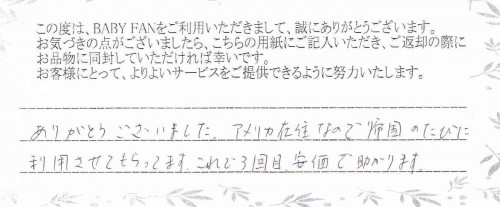 この度は、BABY FANをご利用いただきまして、誠にありがとうございます。
お気づきの点がございましたら、こちらの用紙にご記入いただき、ご返却の際に
お品物に同封していただければ幸いです。
お客様にとって、よりよいサービスをご提供できるように努力いたします。
ありがとうございました。アメリカ在住なので帰国のたびに
利用させてもらってます。これで3回目。安価で助かります。